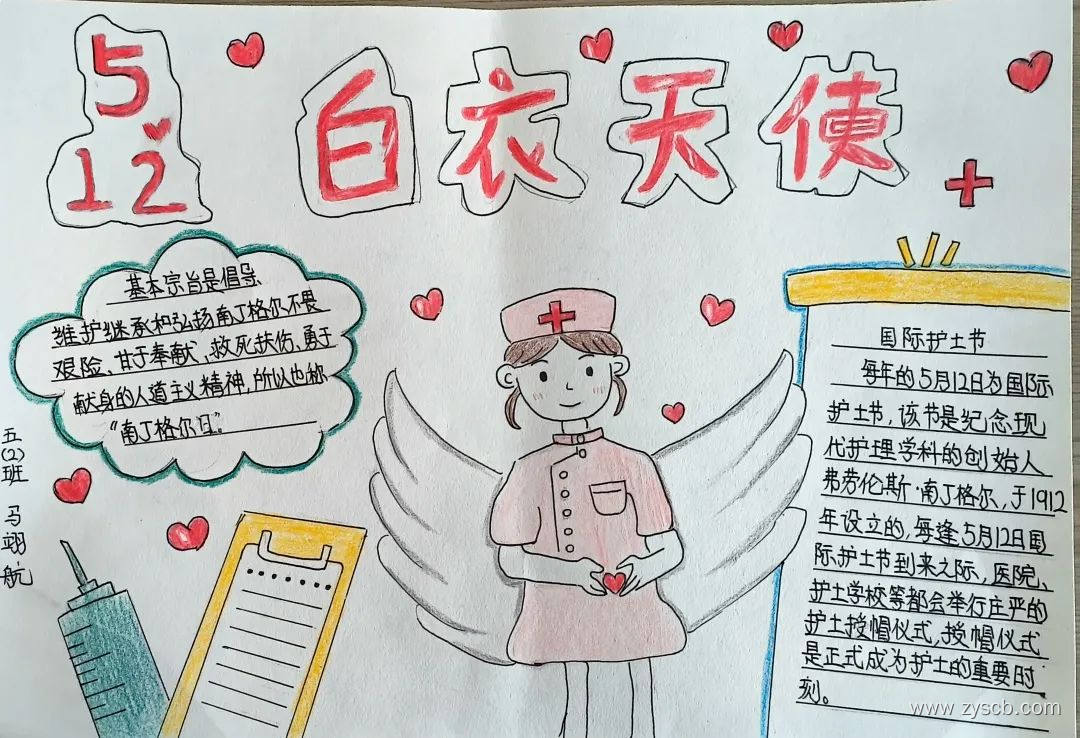 5
12
白衣天使
基本宗旨是倡导
维护继承和弘扬南丁格尔不畏
艰险、甘于奉献、救死扶伤、勇于
献身的人道主义精神,所以也称
“南丁格尔日”。
五(2)班 马翊航
国际护士节
每年的5月12日为国际
护士节,该节是纪念现
代护理学科的创始人
弗劳伦斯·南丁格尔,于1912
年设立的,每逢5月12日国
际护士节到来之际,医院、
护士学校等都会举行庄严的
护士授帽仪式,授帽仪式
是正式成为护士的重要时
刻。
www.zyscb.com